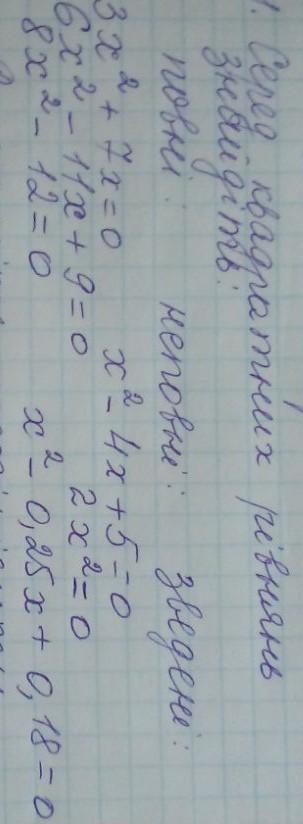 1. Серед квадратних рівнянь
знайдіть:
повні: неповні: зведені:
3x² + 7x = 0 x² - 4x + 5 = 0
6x² - 11x + 9 = 0 2x² = 0
8x² - 12 = 0 x² - 0,25x + 0,18 = 0